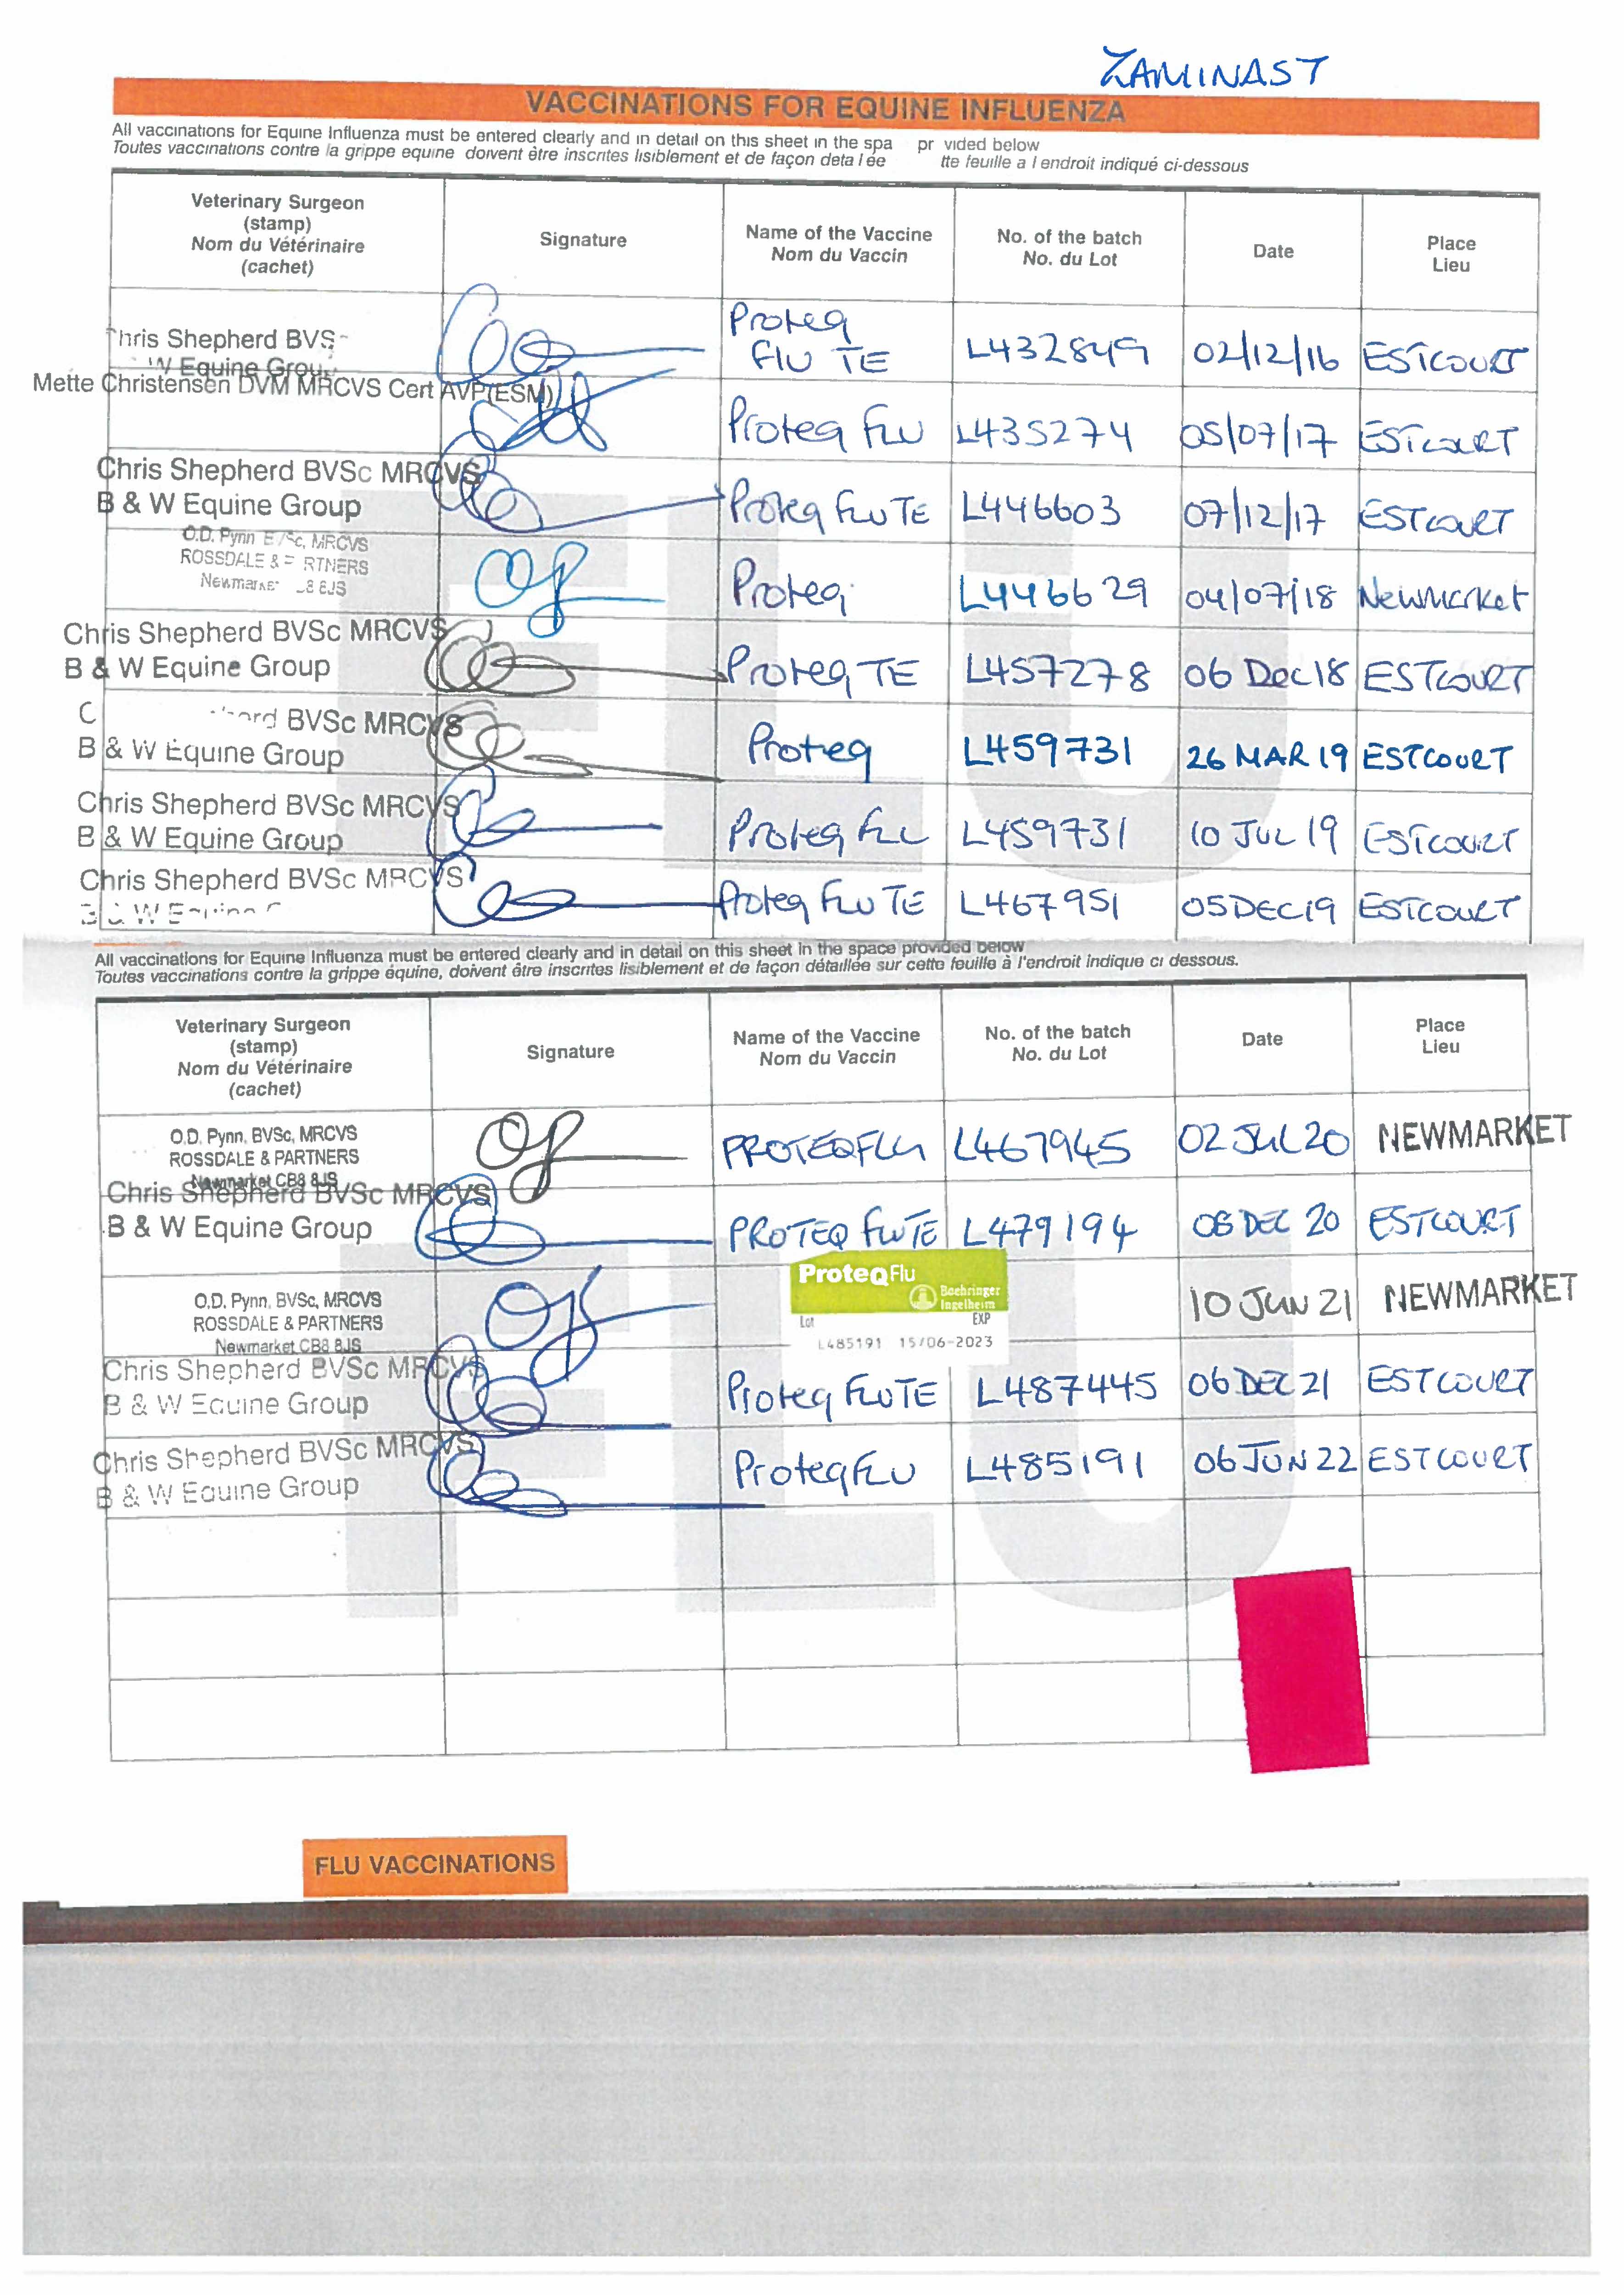 ZAMINAST
VACCINATIONS FOR EQUINE INFLUENZA
All vaccinations for Equine Influenza must be entered clearly and in detail on this sheet in the spa pr vided below
Toutes vaccinations contre la grippe equine doivent être inscrites lisiblement et de façon deta l ée tte feuille a l endroit indiqué ci-dessous
Veterinary Surgeon
(stamp)
Nom du Vétérinaire
(cachet)
Signature
Name of the Vaccine
Nom du Vaccin
No. of the batch
No. du Lot
Date
Place
Lieu
hris Shepherd BVS
W Equine Grou
Proteq
Flu TE
L432849
02/12/16
ESTCOURT
Mette Christensen DVM MRCVS Cert AVP(ESM)
Proteq Flu
L435274
05/07/17
ESTCOURT
Chris Shepherd BVSc MRCVS
B & W Equine Group
Proteq Flu TE
L446603
07/12/17
ESTCOURT
O.D. Pynn MRCVS
ROSSDALE & RTNERS
Newmarket 8JS
Proteq
L446629
04/07/18
Newmarket
Chris Shepherd BVSc MRCVS
B & W Equine Group
Proteq TE
L457278
06 Dec 18
ESTCOURT
C ord BVSc MRCVS
B & W Equine Group
Proteq
L459731
26 MAR 19
ESTCOURT
Chris Shepherd BVSc MRCVS
B & W Equine Group
Proteq FLU
L459731
10 JUL 19
ESTCOURT
Chris Shepherd BVSc MRCVS
Proteq Flu TE
L467951
05 DEC 19
ESTCOURT
All vaccinations for Equine Influenza must be entered clearly and in detail on this sheet in the space provided below
Toutes vaccinations contre la grippe équine, doivent être inscrites lisiblement et de façon détaillée sur cette feuille à l'endroit indique ci dessous.
Veterinary Surgeon
(stamp)
Nom du Vétérinaire
(cachet)
Signature
Name of the Vaccine
Nom du Vaccin
No. of the batch
No. du Lot
Date
Place
Lieu
O.D. Pynn, BVSc, MRCVS
ROSSDALE & PARTNERS
Newmarket CB8 8JS
PROTEQFLU
L467945
02 JUL 20
NEWMARKET
Chris Shepherd BVSc MRCVS
B & W Equine Group
PROTEQ FLUTE
L479194
06 DEC 20
ESTCOURT
O.D. Pynn, BVSc, MRCVS
ROSSDALE & PARTNERS
Newmarket CB8 8JS
ProteqFlu
Boehringer
Ingelheim
Lot EXP
L485191 15/06-2023
10 JUN 21
NEWMARKET
Chris Shepherd BVSc MRCVS
B & W Equine Group
Proteq FLUTE
L487445
06 DEC 21
ESTCOURT
Chris Shepherd BVSc MRCVS
B & W Equine Group
ProteqFLU
L485191
06 JUN 22
ESTCOURT
FLU
FLU
FLU VACCINATIONS